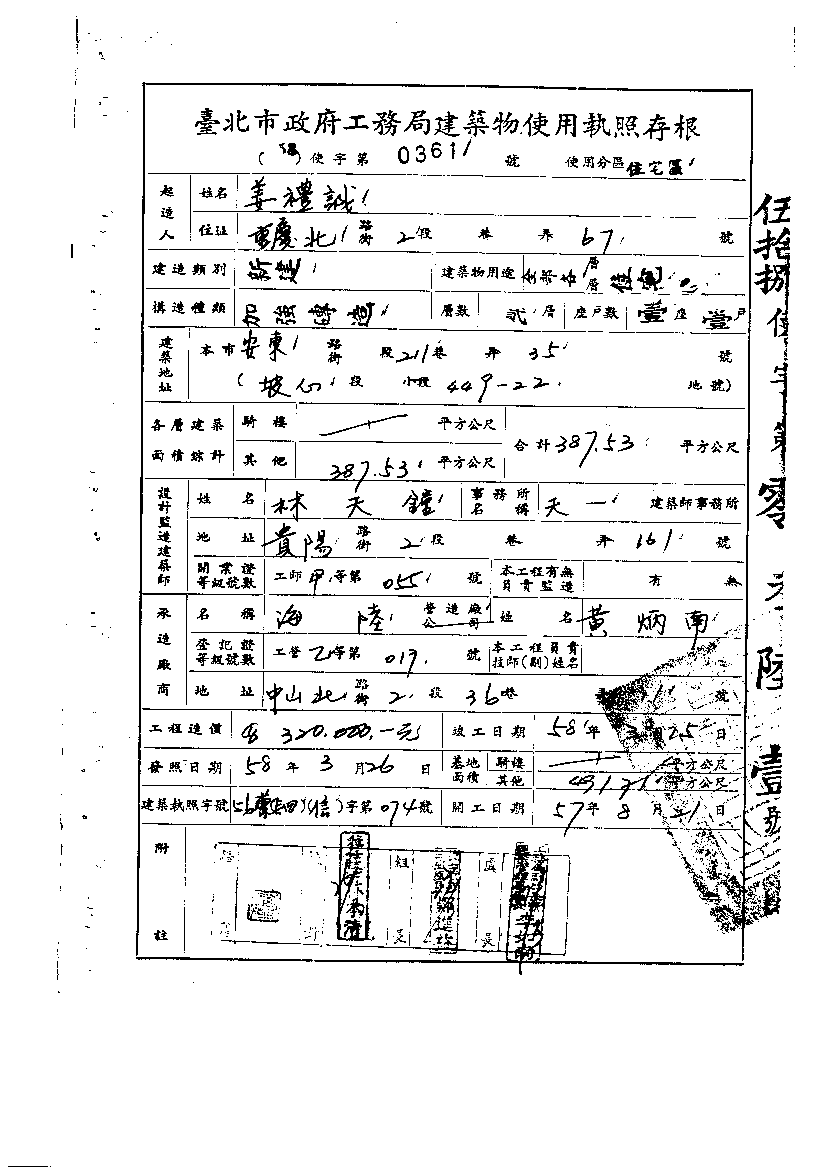 臺北市政府工務局建築物使用執照存根
( ) 使字第 0361 號 使用分區 住宅區
起造人 姓名 姜禮誠
住址 重慶北 路街 2 段 巷 弄 67 號
建造類別 新建 建築物用途 全部各層層住宅
構造種類 加強磚造 層數 貳 層 座戶數 壹 座 壹 戶
建築地址 本市 安東 路街 段 211 巷 弄 35 號
( 坡心 段 小段 449-22 地號)
各層建築面積綜計 騎樓 平方公尺 合計 387.53 平方公尺
其他 387.53 平方公尺
設計監造建築師 姓名 林天鐘 事務所名稱 天一 建築師事務所
地址 貴陽 路街 2 段 巷 弄 161 號
開業證等級號數 工師 甲 等第 055 號 本工程有無負責監造 有 無
承造廠商 名稱 海陸 營造廠公司 姓名 黃炳南
登記證等級號數 工營 乙 等第 017 號 本工程負責技師(副)姓名
地址 中山北 路街 2 段 36 巷 1 號
工程造價 320.000.-元 竣工日期 58 年 3 月 25 日
發照日期 58 年 3 月 26 日 基地面積 騎樓 平方公尺
其他 平方公尺
建築執照字號 字第 074 號 開工日期 57 年 8 月 21 日
附註
組長
處長
伍拾捌使字第零
陸壹號